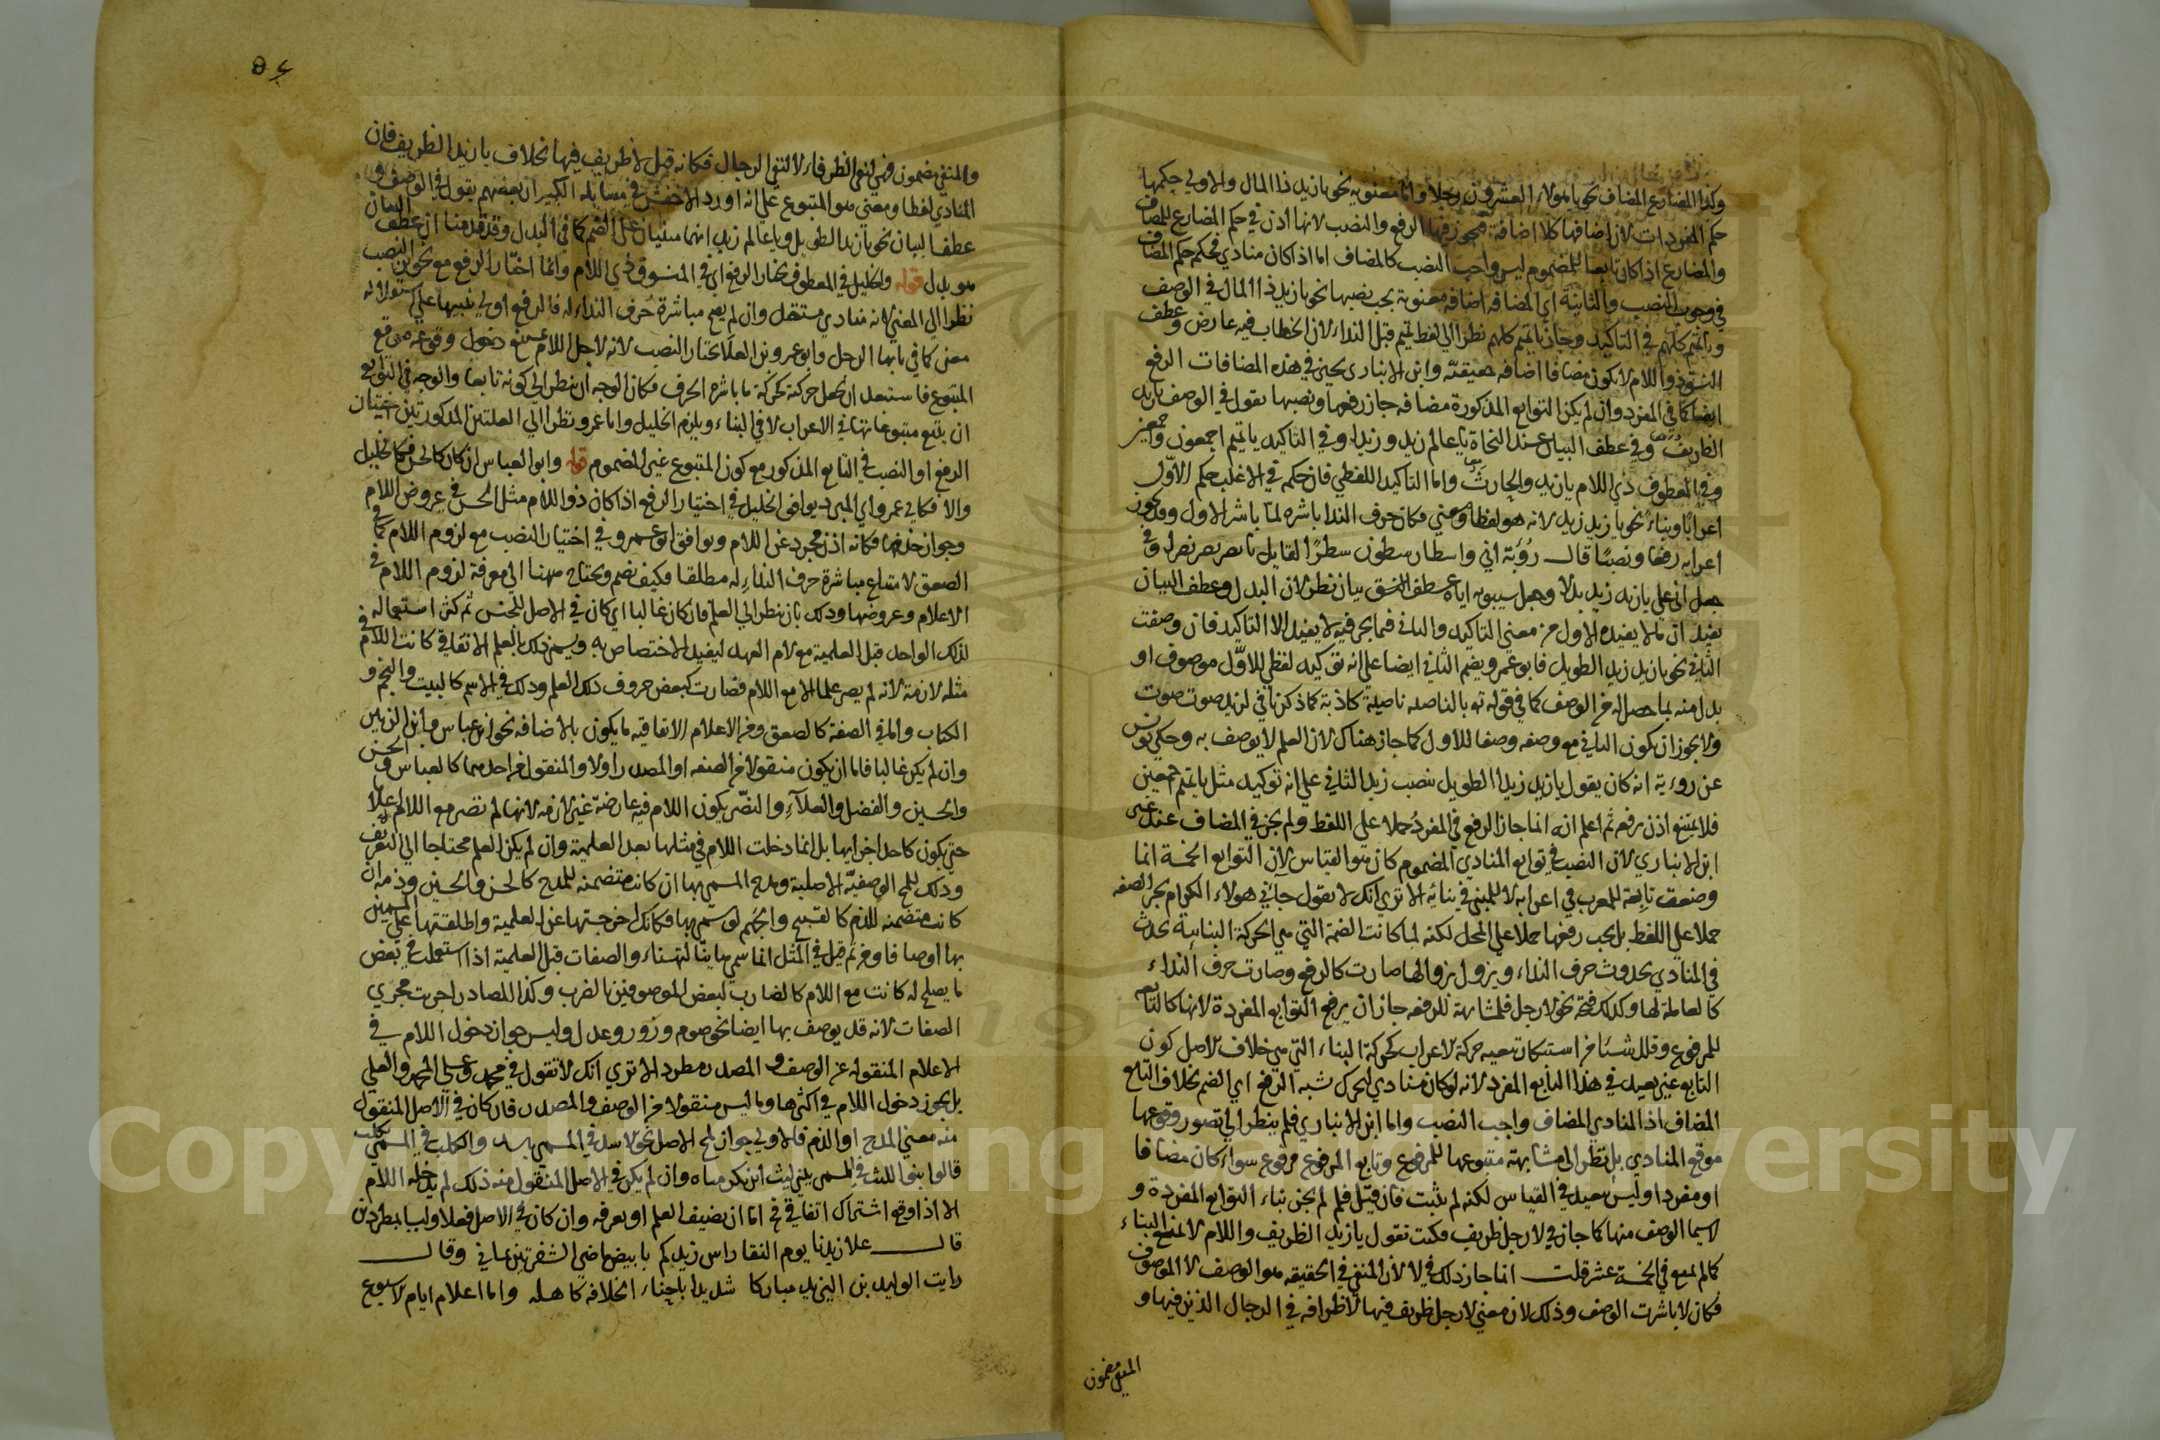 وكذا المضارع المضاف نحو يا هؤلاء العشرون رجلا واما معنوية نحو يا زيد ذا المال والاولى حكمها
حكم المفردات لان اضافتها كلا اضافة فيجوز فيها الرفع والنصب لانها اذن في حكم المضارع للمضاف
والمضارع اذا كان تابعا للمضموم ليس واجب النصب كالمضاف اما اذا كان منادى فحكمه حكم المضاف
في وجوب النصب والثانية اي المضافة اضافة معنوية يجب نصبها نحو يا زيد ذا المال في الوصف
ويا تميم كلهم في التاكيد وجاز يا تميم كلهم نظرا الى لفظ تميم قبل النداء لان الخطاب فيه عارض وعطف
النسق ذو اللام لا يكون مضافا اضافة حقيقية وابن الانباري يجيز في هذه المضافات الرفع
ايضا كما في المفرد وان لم يكن التوابع المذكورة مضافة جاز رفعها ونصبها تقول في الوصف يا زيد
الظريف وفي عطف البيان عند النحاة يا عالم زيد وزيدا وفي التاكيد يا تميم اجمعون واجمعين
وفي المعطوف ذي اللام يا زيد والحارث واما التاكيد اللفظي فان حكمه في الاغلب حكم الاول
اعرابا وبناء نحو يا زيد زيد لانه هو لفظا ومعنى فكان حرف النداء باشره لما باشر الاول وقد يجوز
اعرابه رفعا ونصبا قال رؤبة اني واسطار سطرن سطرا لقايل يا نصر نصر نصرا وفي
جعل اني على يا زيد زيد بدلا وجعل سيبويه اياه عطف النسق بيان نظر لان البدل وعطف البيان
يفيد ان ما لا يفيده الاول من معنى التاكيد والثاني فيما نحن فيه لا يفيد الا التاكيد فان وصفت
الثاني نحو يا زيد زيد الطويل فابو عمرو يضم الثاني ايضا على انه توكيد لفظي للاول موصوف او
بدل منه بما حصل له من الوصف كما في قوله تع بالناصية ناصية كاذبة كما ذكرنا في لزيد صوت صوت
ولا يجوز ان يكون الثاني مع وصفه وصفا للاول كما جاز هناك لان العلم لا يوصف به وحكى يونس
عن روبة انه كان يقول يا زيد زيدا الطويل بنصب زيد الثاني على انه توكيد مثل يا تميم اجمعين
فلا يمتنع اذن رفع ثم اعلم انه انما جاز الرفع في المفرد حملا على اللفظ ولم يجز في المضاف عند غير
ابن الانباري لان النصب في توابع المنادى المضموم كان هو القياس لان التوابع الخمسة انما
وضعت تابعة للمعرب في اعرابه لا للمبني في بنائه الا ترى انك لا تقول جائني هولاء الكرام بجر الصفة
حملا على اللفظ بل يجب رفعها حملا على المحل لكنه لما كانت الضمة التي هي الحركة البنائية تحدث
في المنادى بحدوث حرف النداء ويزول بزوالها صارت كالرفع وصارت حرف النداء
كالعاملة لها وكذلك فتحة نحو لا رجل فلمشابهته للرفعة جاز ان يرفع التوابع المفردة لانها كالتابع
للمرفوع وقلل شيئا من استنكار تبعية حركة الاعراب لحركة البناء التي هي خلاف الاصل كون
التابع غير بعيد في هذا التابع المفرد لانه لو كان منادى لحرك شبه الرفع اي الضم بخلاف التابع
المضاف اذ المنادى المضاف واجب النصب واما ابن الانباري فلم ينظر الى تصور وقوعها
موقع المنادى بل نظر الى مشابهة متبوعها للمرفوع وتابع المرفوع مرفوع سواء كان مضافا
او مفردا وليس ببعيد في القياس لكنه لم يثبت فان قيل فلم لم يجز بناء التوابع المفردة و
لا سيما الوصف منها كما جاز في لا رجل ظريف فكنت تقول يا زيد الظريف واللام لا تمنع البناء
كما لم تمنع في الخمسة عشر قلت انما جاز ذلك في لا لان المنفي في الحقيقة هو الوصف لا الموصوف
فكان لا باشرت الوصف وذلك لان معنى لا رجل ظريف فيها لا ظرافة في الرجال الذين فيها و
المنفي مضمون
٥٤
والمنفي مضمون فهي لنفي الظرفاء لا لنفي الرجال فكانه قيل لا ظريف فيها بخلاف يا زيد الظريف فان
المنادى لفظا ومعنى هو المتبوع على انه اورد الاخفش في مسايله الكبير ان بعضهم يقول في الوصف و
عطف البيان نحو يا زيد الطويل ويا عالم زيد انهما مبنيان على الضم كما في البدل وقد قدمنا ان عطف البيان
هو بدل قوله والخليل في المعطوف يختار الرفع اي في المنسوق ذي اللام وانما اختار الرفع مع تجويز النصب
نظرا الى المعنى لانه منادى مستقل وان لم يصح مباشرة حرف النداء له فالرفع اولى تنبيها على استقلاله
معنى كما في يا ايها الرجل وابو عمرو بن العلا يختار النصب لانه لاجل اللام ممتنع دخول وقوعه موقع
المتبوع فاستبعد ان يجعل حركته كحركة ما باشره الحرف فكان الوجه ان ينظر الى كونه تابعا والوجه في التوابع
ان يتبع متبوعاتها في الاعراب لا في البناء ويلزم الخليل وابا عمرو نظرا الى العلتين المذكورتين اختيار
الرفع او النصب في التابع المذكور مع كون المتبوع غير المضموم قوله وابو العباس ان كان كالحسن فكالخليل
والا فكابي عمرو اي المبرد يوافق الخليل في اختيار الرفع اذا كان ذو اللام مثل الحسن في عروض اللام
وجواز حذفها فكانه اذن مجرد عن اللام ويوافق ابو عمرو في اختيار النصب مع لزوم اللام كما في
الصعق لامتناع مباشرة حرف النداء له مطلقا فكيف نضم ويحتاج ههنا الى معرفة لزوم اللام في
الاعلام وعروضها وذلك بان ينظر الى العلم فان كان غالبا اي كان في الاصل للجنس ثم كثر استعماله في
لذلك الواحد قبل العلمية مع لام العهد ليفيد الاختصاص به ويسمى ذلك بالعلم الاتفاقي كانت اللام في
مثله لازمة لانه لم يصر علما الا مع اللام فصارت كبعض حروف ذلك العلم وذلك في الاسم كالبيت والنجم و
الكتاب واما في الصفة كالصعق ومن الاعلام الاتفاقية ما يكون بالاضافة نحو ابن عباس وابن الزبير
وان لم يكن غالبا فاما ان يكون منقولا من الصفة او المصدر اولا والمنقول من احدهما كالعباس والحسن
والحسين والفضل والعلاء والنضر يكون اللام فيه عارضة غير لازمة لانها لم تصر مع اللام علما
حتى يكون كاحد اجزايها بل انما دخلت اللام في مثلها بعد العلمية وان لم يكن العلم محتاجا الى التعريف
وذلك للمح الوصفية الاصلية ومدح المسمى بها ان كانت متضمنة للمدح كالحسن والحسين وذمه ان
كانت متضمنة للذم كالقبيح والجهم لو سمي بها فكانك اخرجتها عن العلمية واطلقتها على المسمين
بها اوصافا ومن ثم قيل في المثل انما سميت هانيا لتهناء والصفات قبل العلمية اذا استعملت في بعض
ما يصلح له كانت مع اللام كالضارب لبعض الموصوفين بالضرب وكذا المصادر اجريت مجرى
الصفات لانه قد يوصف بها ايضا نحو صوم وزور وعدل وليس جواز دخول اللام في
الاعلام المنقولة عن الوصف والمصدر بمطرد الا ترى انك لا تقول في محمد وعلي المحمد والعلي
بل يجوز دخول اللام في اكثرها وما ليس منقولا من الوصف والمصدر فان كان في الاصل المنقول
منه معنى المدح او الذم فالاولى جواز لمح الاصل نحو الاسد في المسمى باسد والكلب في المسمى بكلب
قالوا بنو الليث في المسمى ببني ليث ابن بكر مناه وان لم يكن في الاصل المنقول منه ذلك لم يدخله اللام
الا اذا وقع اشتراك اتفاقي فح اما ان يضيف العلم او يعرفه وان كان في الاصل فعلا وليسا بمطردين
قال علا زيدنا يوم النقا راس زيدكم بابيض ماضي الشفرتين يماني وقال
رايت الوليد بن اليزيد مباركا شديدا باحناء الخلافة كاهله واما اعلام ايام الاسبوع
Copyright © King Saud University